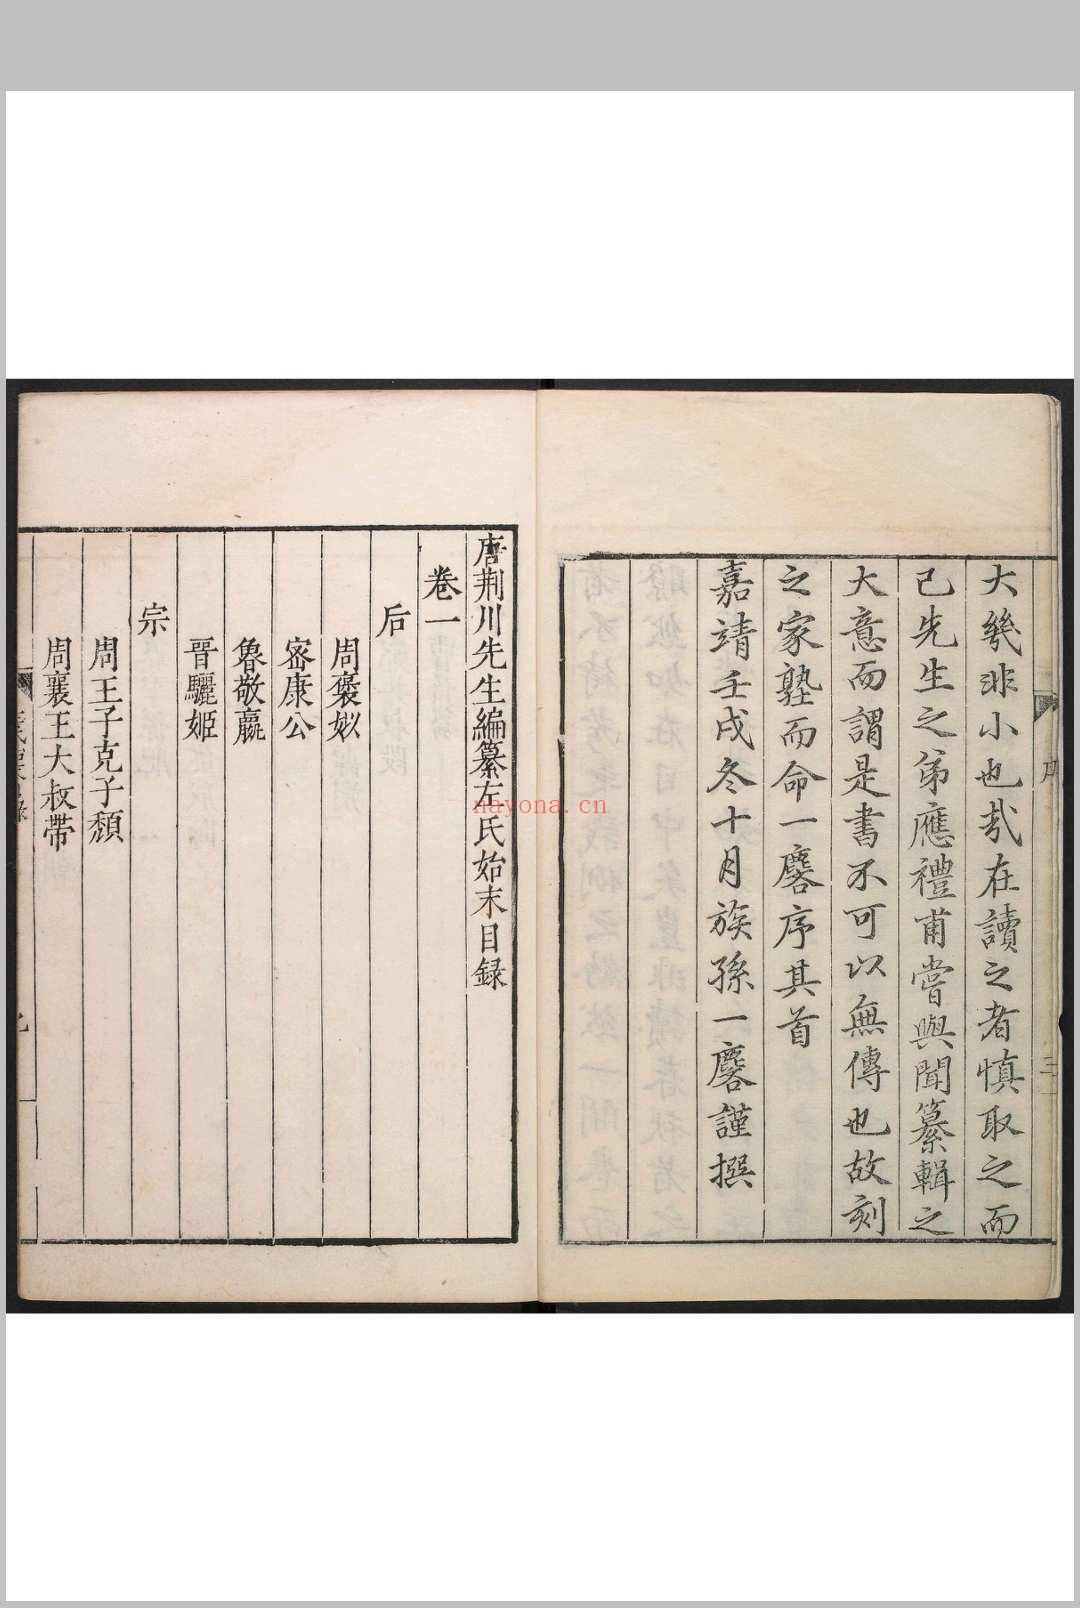 大幾非小也哉在讀之者慎取之而
已先生之弟應禮甫嘗與聞纂輯之
大意而謂是書不可以無傳也故刻
之家塾而命一麐序其首
嘉靖壬戌冬十月族孫一麐謹撰
唐荆川先生編纂左氏始末目録
卷一
后
周褒姒
密康公
魯敬嬴
晉驪姬
宗
周王子克子頽
周襄王大叔帶
nayona.cn